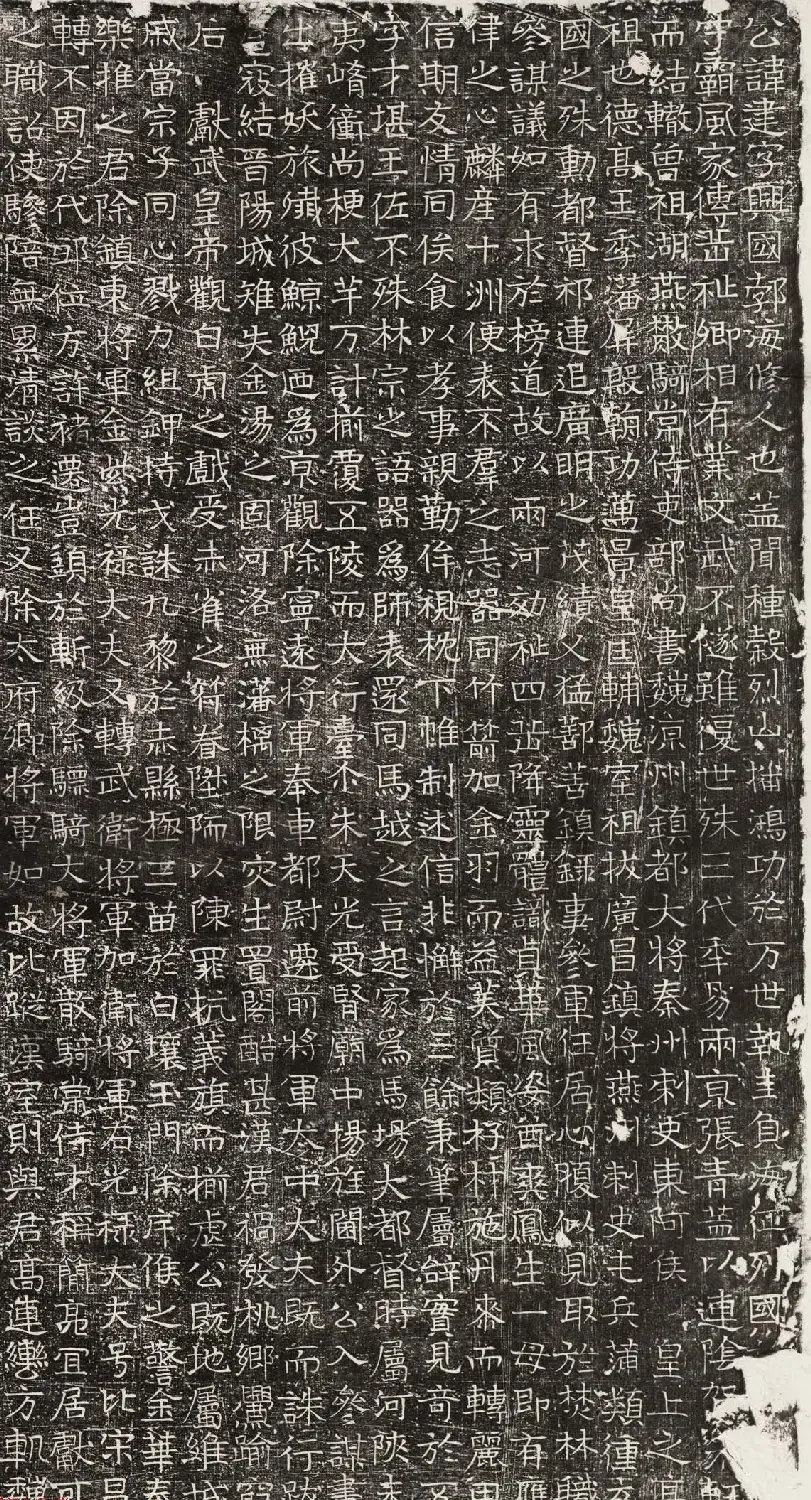 公諱建字興國勃海條人也蓋聞種穀烈山播鴻功於万世執圭負
守霸風家傳世祉卿相有業文武不墜雖復世殊三代年易兩京張青蓋以連陰
而結轍曾祖湖燕散騎常侍吏部尚書魏涼州鎮都大將秦州刺史東阿侯皇上之
祖也德高王季藩屏毀翰功萬景皇匡輔魏室祖拔廣昌鎮將燕州刺史走兵蒲類連
國之殊勳都督祁連追廣明之茂績父猛鄯善鎮錄事參軍任居心腹似見取於焚林職
參謀議如有求於榜道故以兩河効祉四岳降靈體識貞華風姿酋爽鳳生一毋即有應
律之心麟產十洲便表不羣之志器同竹箭加金羽而益美質類杼材施丹漆而轉麗因
信期友情同侯食以孝事親勤侔視枕下帷制述信非懈於三餘秉筆屬辭實見奇於
字才堪王佐不殊林宗之語器爲師表還同馬越之言起家爲馬場大都督時屬河陝
夷崤衝尚梗犬羊万計揃覆五陵而大行臺尒朱天光受脤廟中揚旌閫外公入參謀
士摧妖旅殲彼鯨鯢迺爲京觀除寧遠將軍奉車都尉遷前將軍太中大夫既而誅行
寇結晉陽城雉失金湯之固河洛無藩籬之限灾生置閣酷甚漢君禍發桃鄉舋踰
后獻武皇帝觀白虎之戲受赤雀之符眷陞陑以陳罪杭義旗而揃虐公既地屬維城
戚當宗子同心戮力組鉀持戈誅九黎於赤縣極三苗於白壤王門除庶條之警金華
樂推之君除鎮東將軍金紫光祿大夫又轉武衛將軍加衛將軍右光祿大夫号比宋昌
轉不因於代邸位方許褚遷豈頭於斬級除驃騎大將軍散騎常侍才稱簡亮宜居獻可
之職詔使驂陪無累清談之任又除太府卿將軍如故比蹤漢室則與君高連轡方軌魏